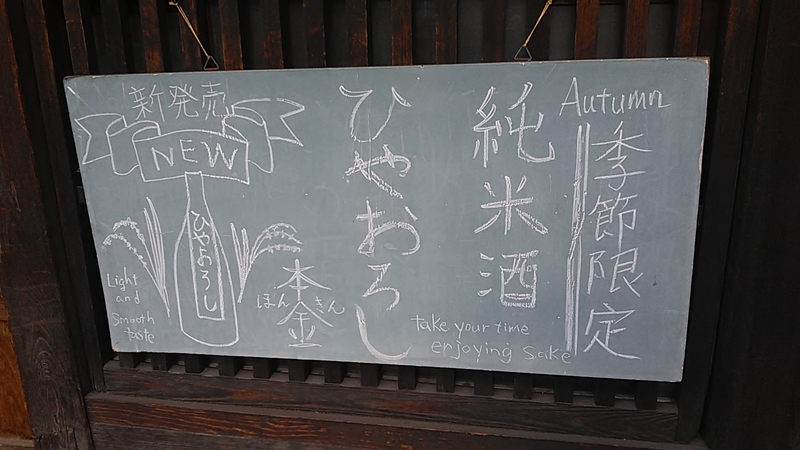 Autumn
季節限定
純米酒
ひやおろし
take your time
enjoying Sake
新発売
NEW
ひやおろし
本金
ほん きん
Light
and
Smooth
taste